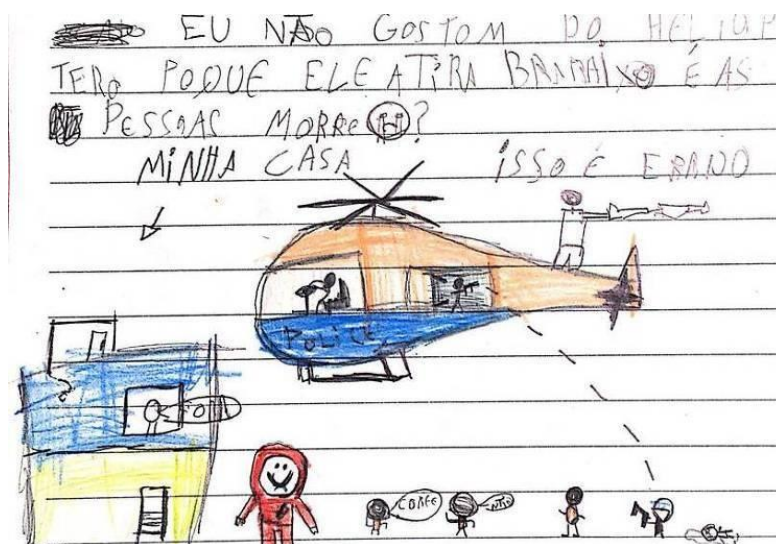 EU NÃO GOSTOM DO HELIUP
TERO POQUE ELE ATIRA BRARAIXO É AS
PESSOAS MORRE?
MINHA CASA ISSO É ERADO
POLICE
CORRE
NÃO